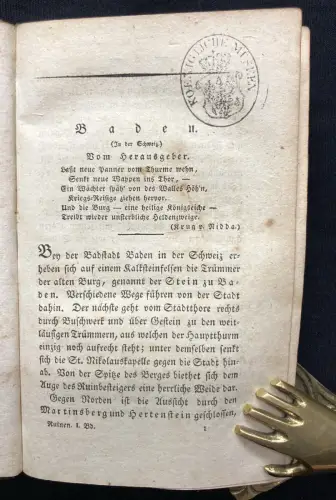 KOENIGLICHE MUSEEN
Baden.
(In der Schweiz)
Vom Herausgeber.
Laßt neue Panner vom Thurme wehn,
Senkt neue Wappen ins Thor, —
Ein Wächter späh' von des Walles Höh'n,
Kriegs-Reisige ziehen hervor.
Und die Burg — eine heilige Königseiche —
Treibt wieder unsterbliche Heldenzweige.
(Krug v. Nidda.)
Bey der Badstadt Baden in der Schweiz er-
heben sich auf einem Kalksteinfelsen die Trümmer
der alten Burg, genannt der Stein zu Ba-
den. Verschiedene Wege führen von der Stadt
dahin. Der nächste geht vom Stadtthore rechts
durch Buschwerk und über Gestein zu den weit-
läufigen Trümmern, aus welcher der Hauptthurm
einzig noch aufrecht steht; unter demselben senkt
sich die St. Nikolauskapelle gegen die Stadt hin-
ab. Von der Spitze des Berges biethet sich dem
Auge des Ruinbesteigers eine herrliche Weide dar.
Gegen Norden ist die Aussicht durch den
Martinsberg und Hertenstein geschlossen,
Ruinen. 1. Bd. 1